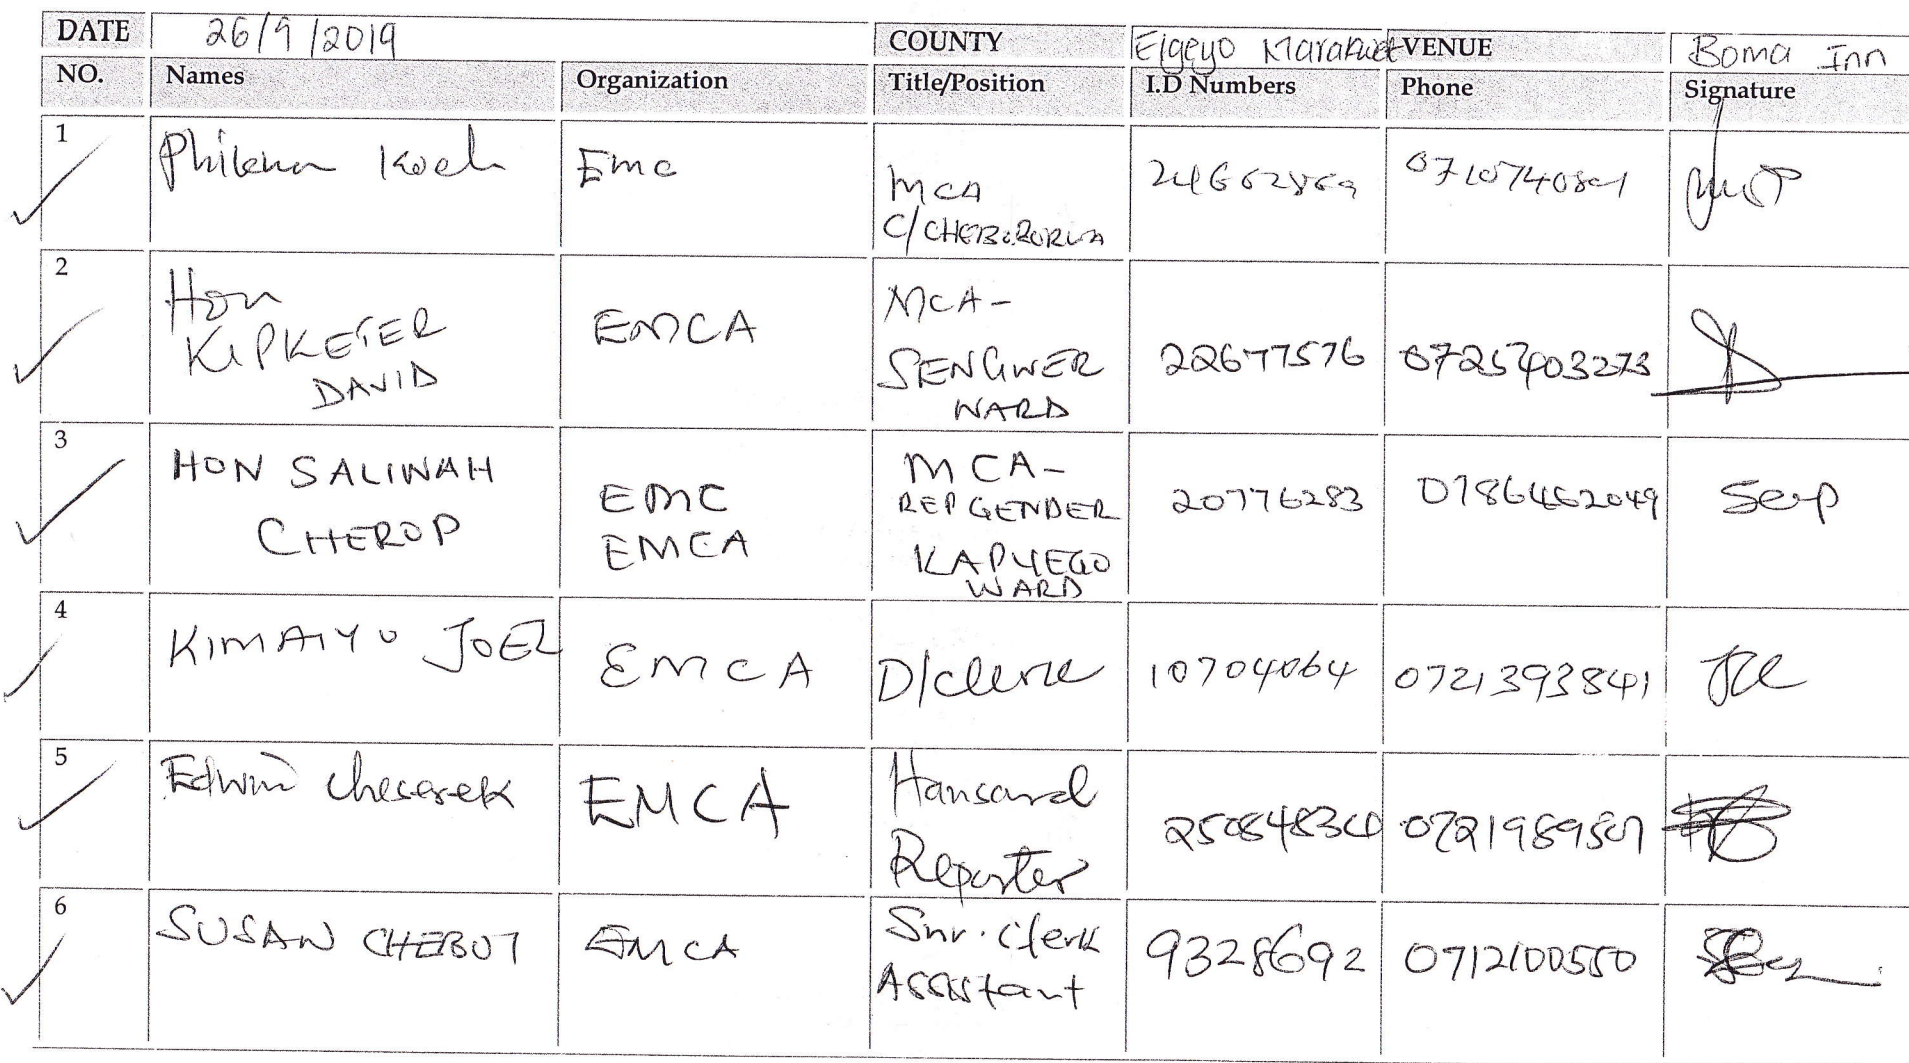 DATE 26/9/2019 COUNTY Elgeyo Marakwet VENUE Boma Inn
NO. Names Organization Title/Position I.D Numbers Phone Signature
1 Philena Koech Emc MCA
C/CHEBORORWA
2 Hon
KIPKETER
DAVID
EMCA
MCA-
SENGWER
WARD
22677576 0725403273
3 HON SALINAH
CHEROP
EMC
EMCA
MCA-
REP GENDER
KAPYEGO
WARD
20776283 0786452049 Serp
4 KIMAIYO JOEL EMCA D/Clerk 10704064 0721393841
5 Edwin Cheserek EMCA Hansard
Reporter
0721989507
6 SUSAN CHEBOT EMCA Snr. Clerk
Assistant
9328692 0712100550